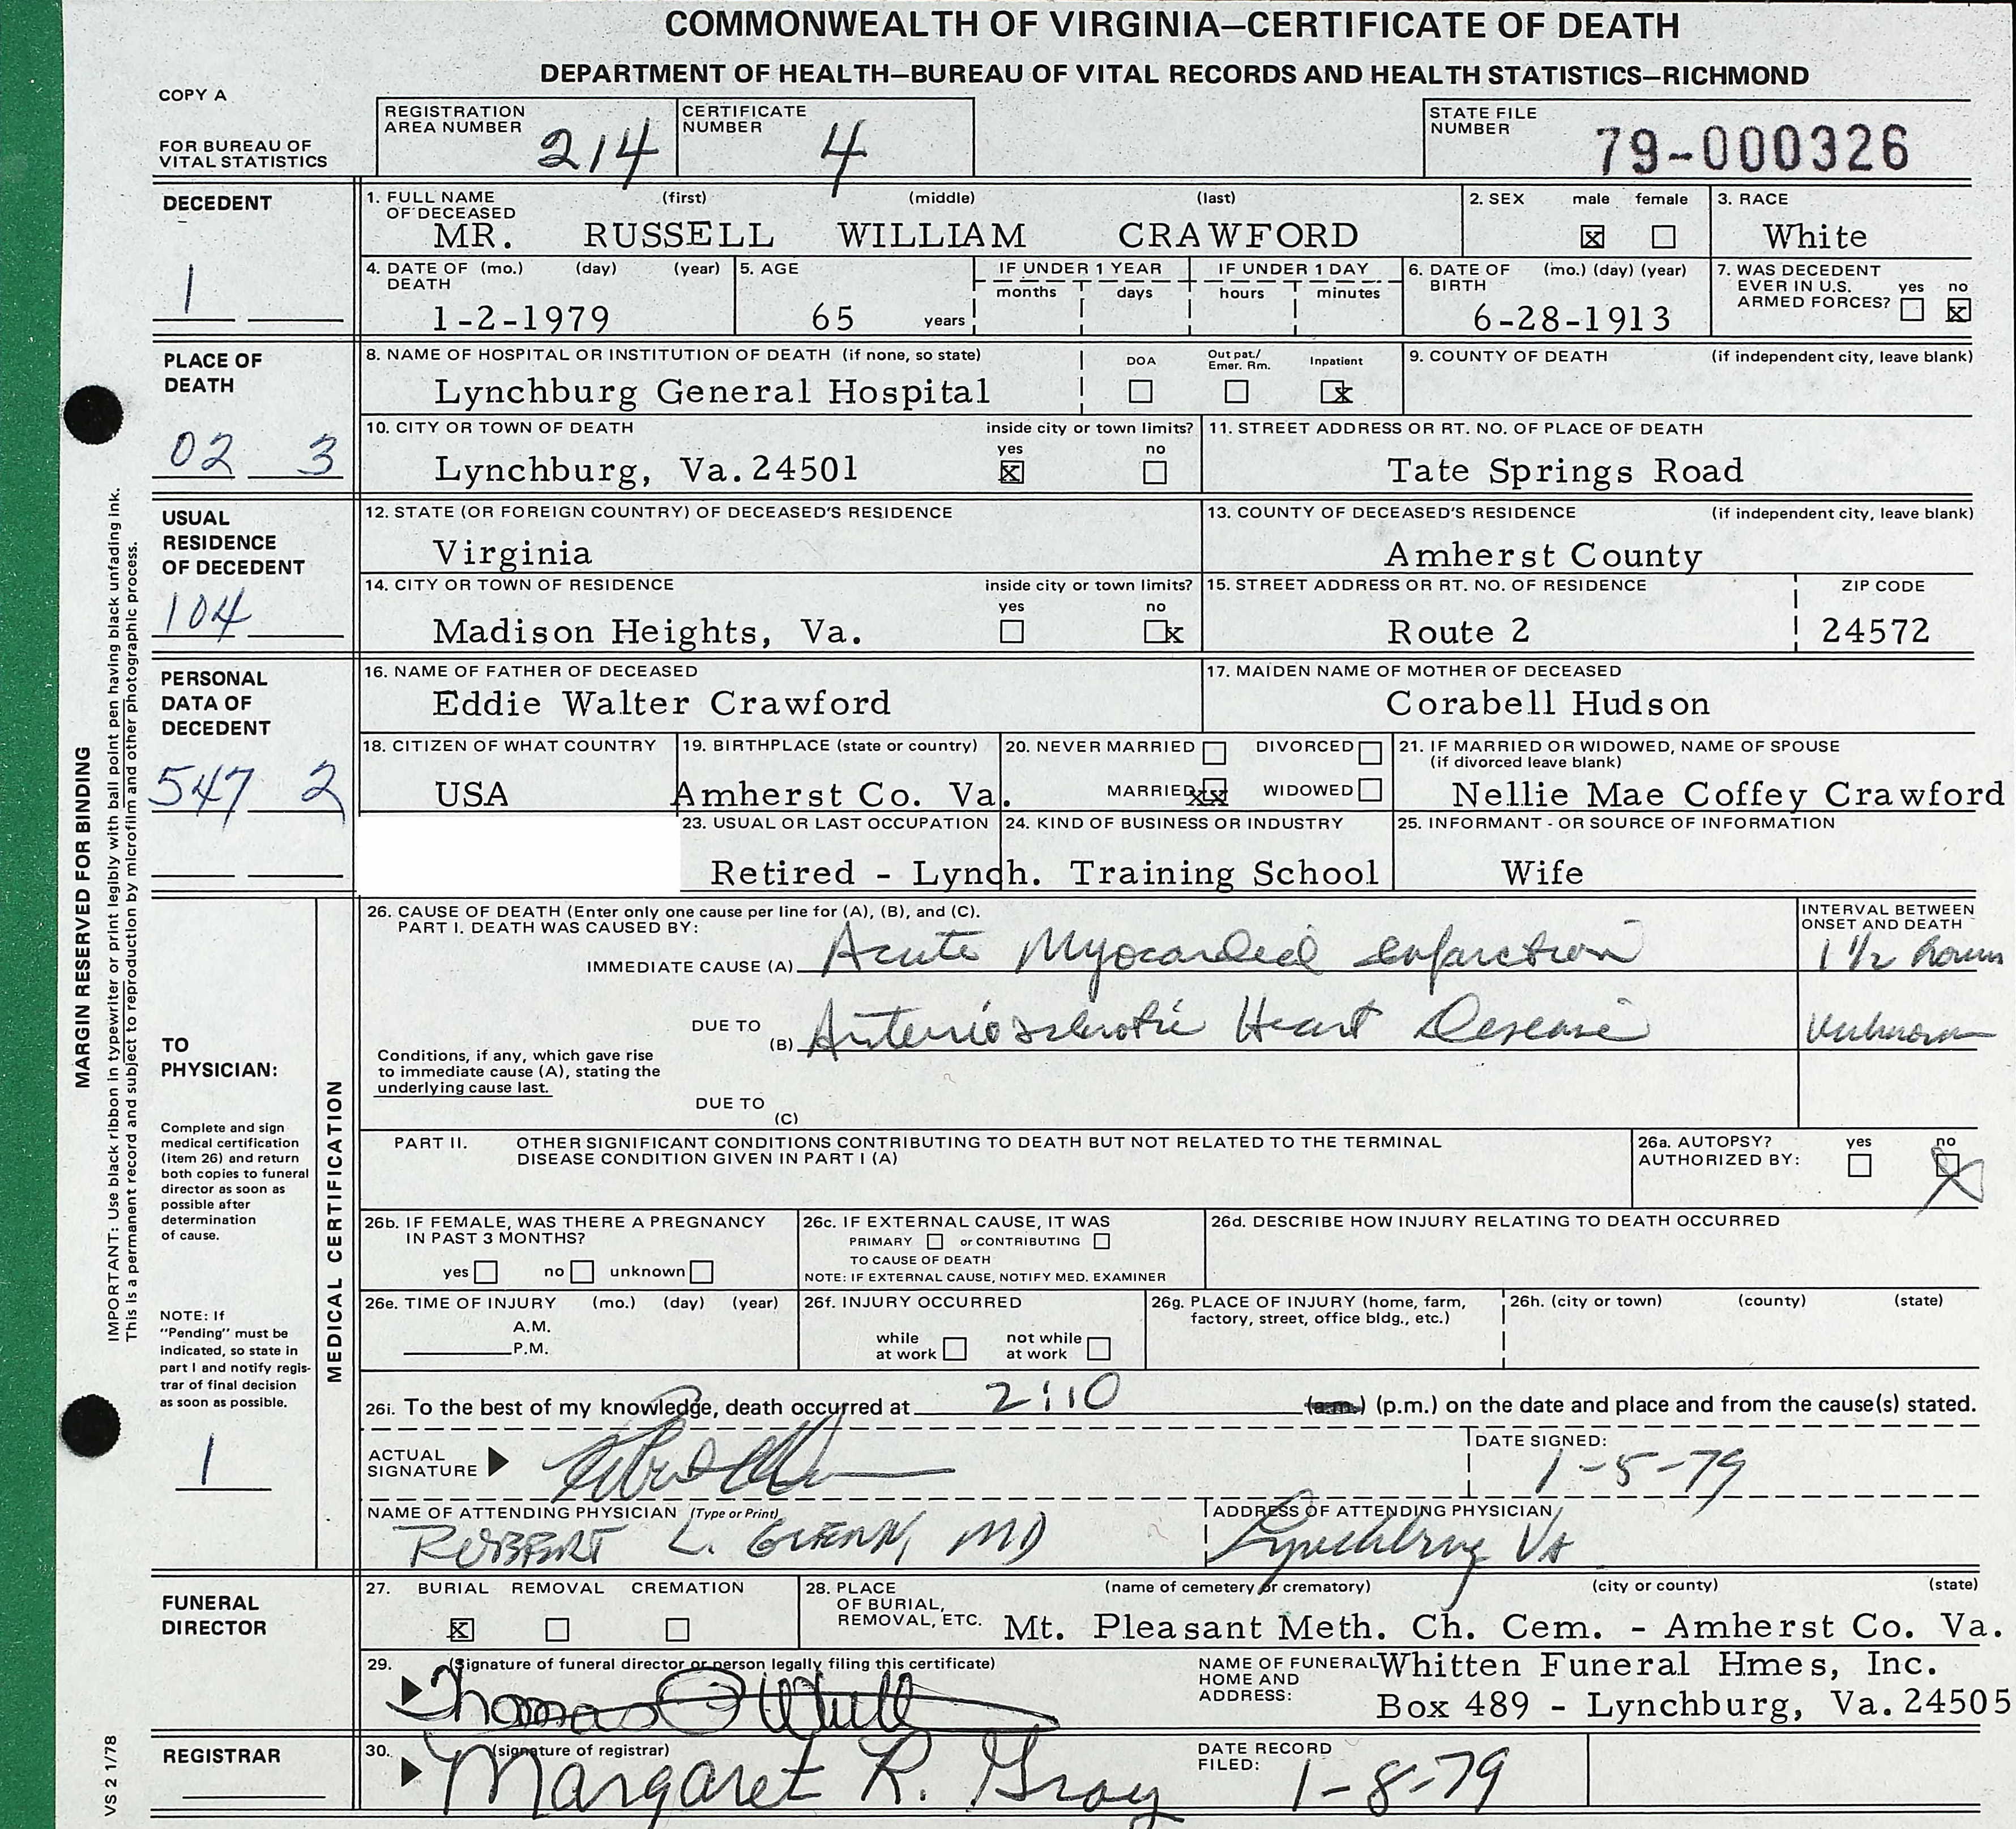 COMMONWEALTH OF VIRGINIA—CERTIFICATE OF DEATH
DEPARTMENT OF HEALTH—BUREAU OF VITAL RECORDS AND HEALTH STATISTICS—RICHMOND
COPY A
FOR BUREAU OF
VITAL STATISTICS
REGISTRATION
AREA NUMBER 214
CERTIFICATE
NUMBER 4
STATE FILE
NUMBER 79-000326
DECEDENT
1
1. FULL NAME (first) (middle) (last)
OF DECEASED
MR. RUSSELL WILLIAM CRAWFORD
2. SEX male female
x
3. RACE
White
4. DATE OF (mo.) (day) (year)
DEATH
1-2-1979
5. AGE
65 years
IF UNDER 1 YEAR
months days
IF UNDER 1 DAY
hours minutes
6. DATE OF (mo.) (day) (year)
BIRTH
6-28-1913
7. WAS DECEDENT
EVER IN U.S. yes no
ARMED FORCES? x
PLACE OF
DEATH
02 3
8. NAME OF HOSPITAL OR INSTITUTION OF DEATH (if none, so state)
Lynchburg General Hospital
DOA Out pat./ Emer. Rm. Inpatient
x
9. COUNTY OF DEATH (if independent city, leave blank)
10. CITY OR TOWN OF DEATH inside city or town limits?
yes no
Lynchburg, Va. 24501 x
11. STREET ADDRESS OR RT. NO. OF PLACE OF DEATH
Tate Springs Road
USUAL
RESIDENCE
OF DECEDENT
104
12. STATE (OR FOREIGN COUNTRY) OF DECEASED'S RESIDENCE
Virginia
13. COUNTY OF DECEASED'S RESIDENCE (if independent city, leave blank)
Amherst County
14. CITY OR TOWN OF RESIDENCE inside city or town limits?
yes no
Madison Heights, Va. x
15. STREET ADDRESS OR RT. NO. OF RESIDENCE ZIP CODE
Route 2 24572
PERSONAL
DATA OF
DECEDENT
547 2
16. NAME OF FATHER OF DECEASED
Eddie Walter Crawford
17. MAIDEN NAME OF MOTHER OF DECEASED
Corabell Hudson
18. CITIZEN OF WHAT COUNTRY
USA
19. BIRTHPLACE (state or country)
Amherst Co. Va.
20. NEVER MARRIED DIVORCED
MARRIED xx WIDOWED
21. IF MARRIED OR WIDOWED, NAME OF SPOUSE
(if divorced leave blank)
Nellie Mae Coffey Crawford
23. USUAL OR LAST OCCUPATION 24. KIND OF BUSINESS OR INDUSTRY
Retired - Lynch. Training School
25. INFORMANT - OR SOURCE OF INFORMATION
Wife
MARGIN RESERVED FOR BINDING
IMPORTANT: Use black ribbon in typewriter or print legibly with ball point pen having black unfading ink.
This is a permanent record and subject to reproduction by microfilm and other photographic process.
TO
PHYSICIAN:
Complete and sign
medical certification
(item 26) and return
both copies to funeral
director as soon as
possible after
determination
of cause.
NOTE: If
"Pending" must be
indicated, so state in
part I and notify regis-
trar of final decision
as soon as possible.
1
MEDICAL CERTIFICATION
26. CAUSE OF DEATH (Enter only one cause per line for (A), (B), and (C).
PART I. DEATH WAS CAUSED BY:
INTERVAL BETWEEN
ONSET AND DEATH
IMMEDIATE CAUSE (A) Acute Myocardial infarction 1 1/2 hours
DUE TO (B) Arteriosclerotic Heart Disease Unknown
Conditions, if any, which gave rise
to immediate cause (A), stating the
underlying cause last.
DUE TO (C)
PART II. OTHER SIGNIFICANT CONDITIONS CONTRIBUTING TO DEATH BUT NOT RELATED TO THE TERMINAL
DISEASE CONDITION GIVEN IN PART I (A)
26a. AUTOPSY? yes no
AUTHORIZED BY: X
26b. IF FEMALE, WAS THERE A PREGNANCY
IN PAST 3 MONTHS?
yes no unknown
26c. IF EXTERNAL CAUSE, IT WAS
PRIMARY or CONTRIBUTING
TO CAUSE OF DEATH
NOTE: IF EXTERNAL CAUSE, NOTIFY MED. EXAMINER
26d. DESCRIBE HOW INJURY RELATING TO DEATH OCCURRED
26e. TIME OF INJURY (mo.) (day) (year)
A.M.
P.M.
26f. INJURY OCCURRED
while at work not while at work
26g. PLACE OF INJURY (home, farm,
factory, street, office bldg., etc.)
26h. (city or town) (county) (state)
26i. To the best of my knowledge, death occurred at 2:10 (a.m.) (p.m.) on the date and place and from the cause(s) stated.
ACTUAL
SIGNATURE
DATE SIGNED:
1-5-79
NAME OF ATTENDING PHYSICIAN (Type or Print)
ROBERT L. GLENN, MD
ADDRESS OF ATTENDING PHYSICIAN
Lynchburg Va
FUNERAL
DIRECTOR
27. BURIAL REMOVAL CREMATION
x
28. PLACE (name of cemetery or crematory) (city or county) (state)
OF BURIAL,
REMOVAL, ETC. Mt. Pleasant Meth. Ch. Cem. - Amherst Co. Va.
29. (Signature of funeral director or person legally filing this certificate)
Thomas
NAME OF FUNERAL Whitten Funeral Hmes, Inc.
HOME AND
ADDRESS: Box 489 - Lynchburg, Va. 24505
REGISTRAR
30. (signature of registrar)
Margaret R. Gray
DATE RECORD
FILED: 1-8-79
VS 2 1/78